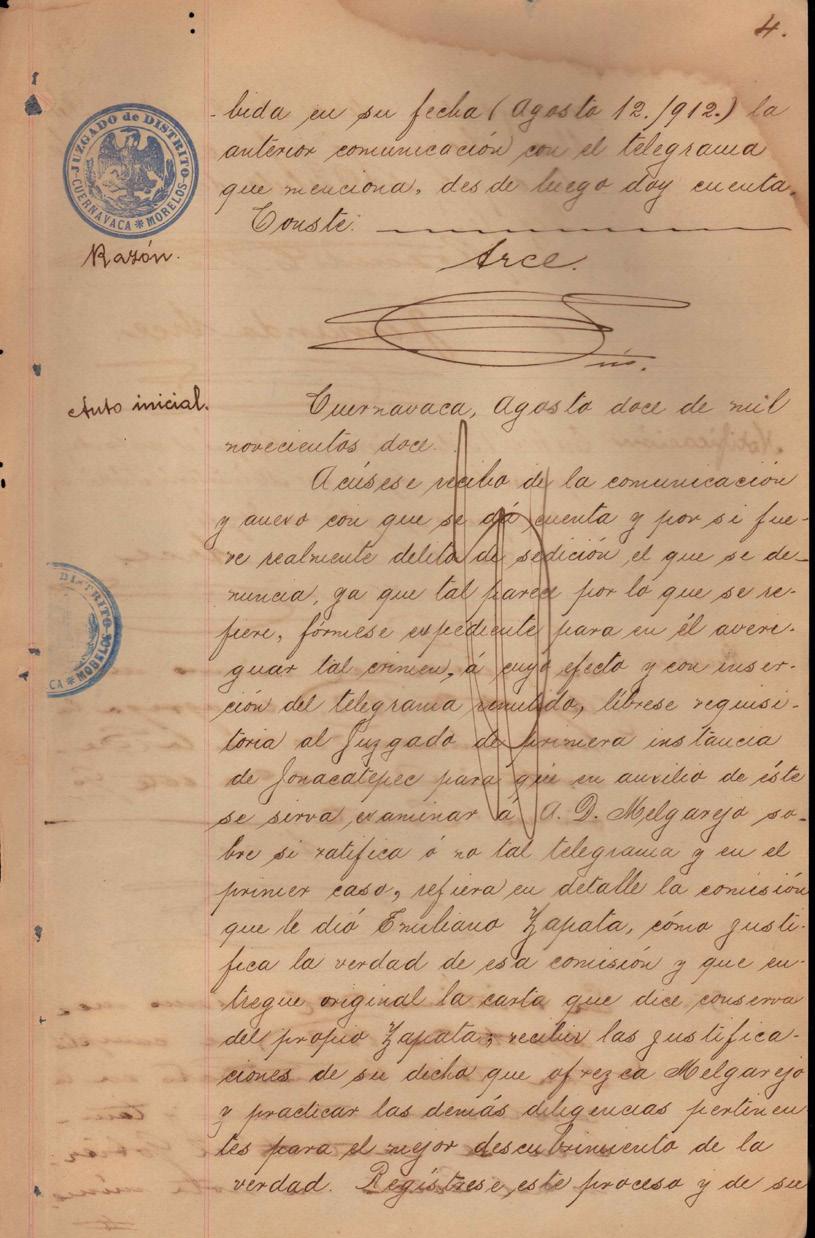 4.
JUZGADO de DISTRITO
CUERNAVACA * MORELOS
-bida en su fecha (Agosto 12./912.) la
anterior comunicación con el telegrama
que menciona, desde luego doy cuenta.
Conste.
Razón.
Arce.
Auto inicial.
Cuernavaca, Agosto doce de mil
novecientos doce.
Acúsese recibo de la comunicación
y anexo con que se dá cuenta y por si fue-
re realmente delito de sedición el que se de-
nuncia, ya que tal parece por lo que se re-
fiere, fórmese expediente para en él averi-
guar tal crimen, á cuyo efecto y con inser-
ción del telegrama remitido, líbrese requisi-
toria al Juzgado de primera instancia
de Jonacatepec para que en auxilio de éste
se sirva examinar á A. D. Melgarejo so-
bre si ratifica ó no tal telegrama y en el
primer caso, refiera en detalle la comisión
que le dió Emiliano Zapata, cómo justi-
fica la verdad de esa comisión y que en-
tregue original la carta que dice conserva
del propio Zapata; recibir las justifica-
ciones de su dicho que ofrezca Melgarejo
y practicar las demás diligencias pertinen
tes para el mejor descubrimiento de la
verdad. Regístrese este proceso y de su
DISTRITO
CA * MORELOS